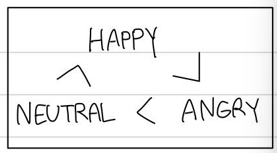 HAPPY
NEUTRAL < ANGRY